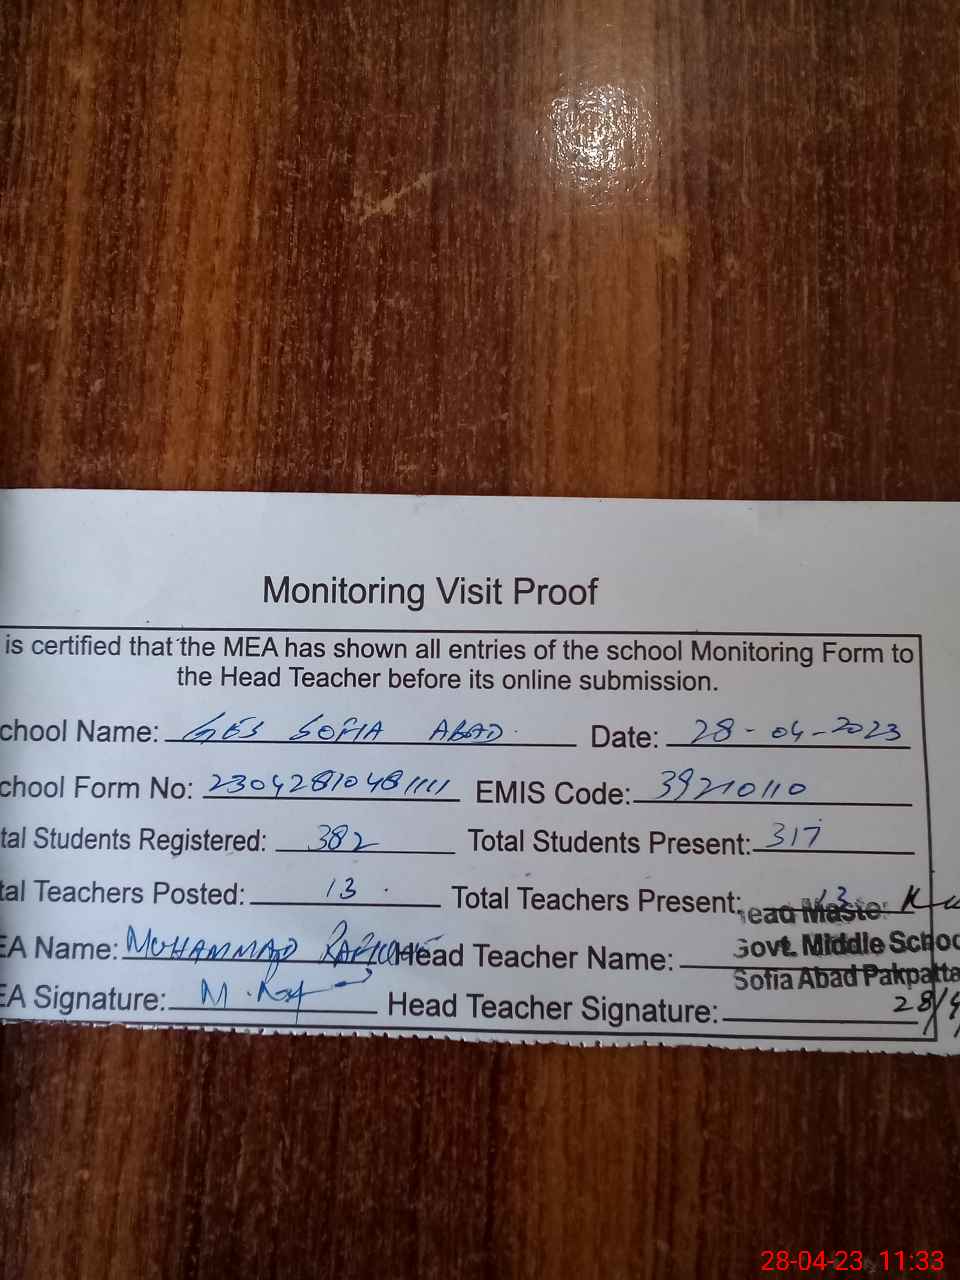 Monitoring Visit Proof
is certified that the MEA has shown all entries of the school Monitoring Form to
the Head Teacher before its online submission.
chool Name: GES SOFIA ABAD Date: 28-04-2023
chool Form No: 230428104811111 EMIS Code: 39210110
tal Students Registered: 382 Total Students Present: 317
tal Teachers Posted: 13 Total Teachers Present: 13
EA Name: MUHAMMAD Head Teacher Name:
EA Signature: Head Teacher Signature:
ead Master
Govt. Middle Schoo
Sofia Abad Pakpatta
28/4
28-04-23 11:33